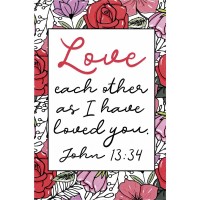 Love
each other
as I have
loved you.
John 13:34